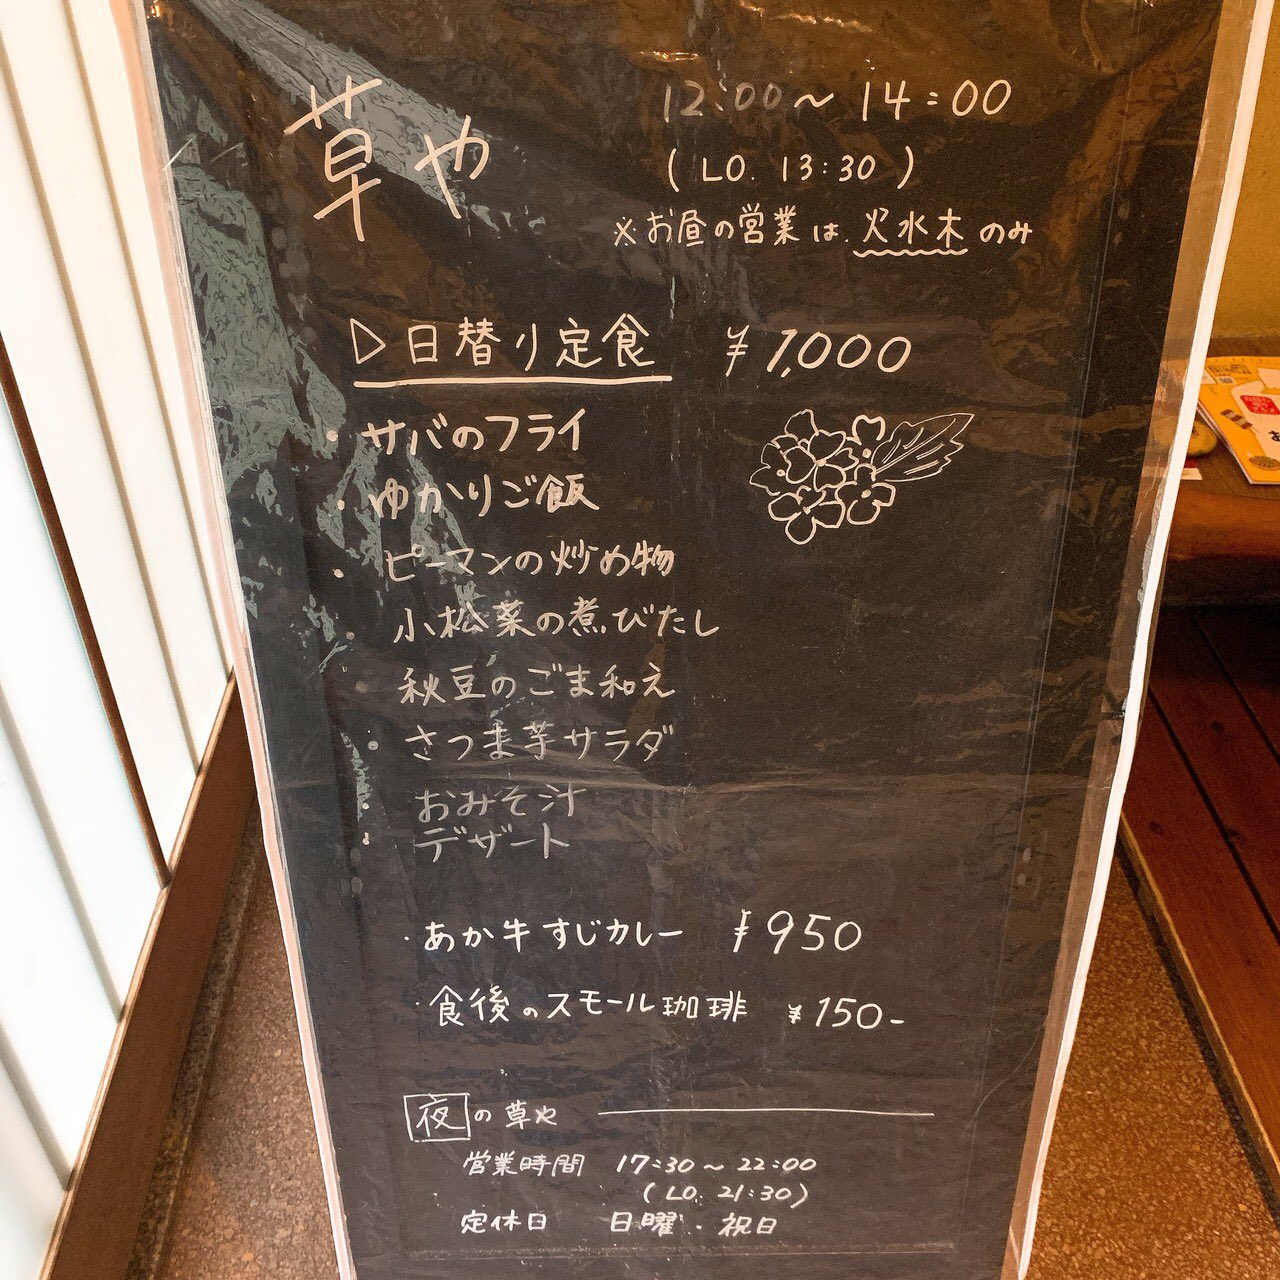 草や
12:00〜14:00
(LO. 13:30)
※お昼の営業は、火水木のみ
▷日替り定食 ¥1,000
・サバのフライ
・ゆかりご飯
・ピーマンの炒め物
・小松菜の煮びたし
・秋豆のごま和え
・さつま芋サラダ
・おみそ汁
・デザート
・あか牛すじカレー ¥950
・食後のスモール珈琲 ¥150-
夜の草や
営業時間 17:30〜22:00
(LO. 21:30)
定休日 日曜・祝日